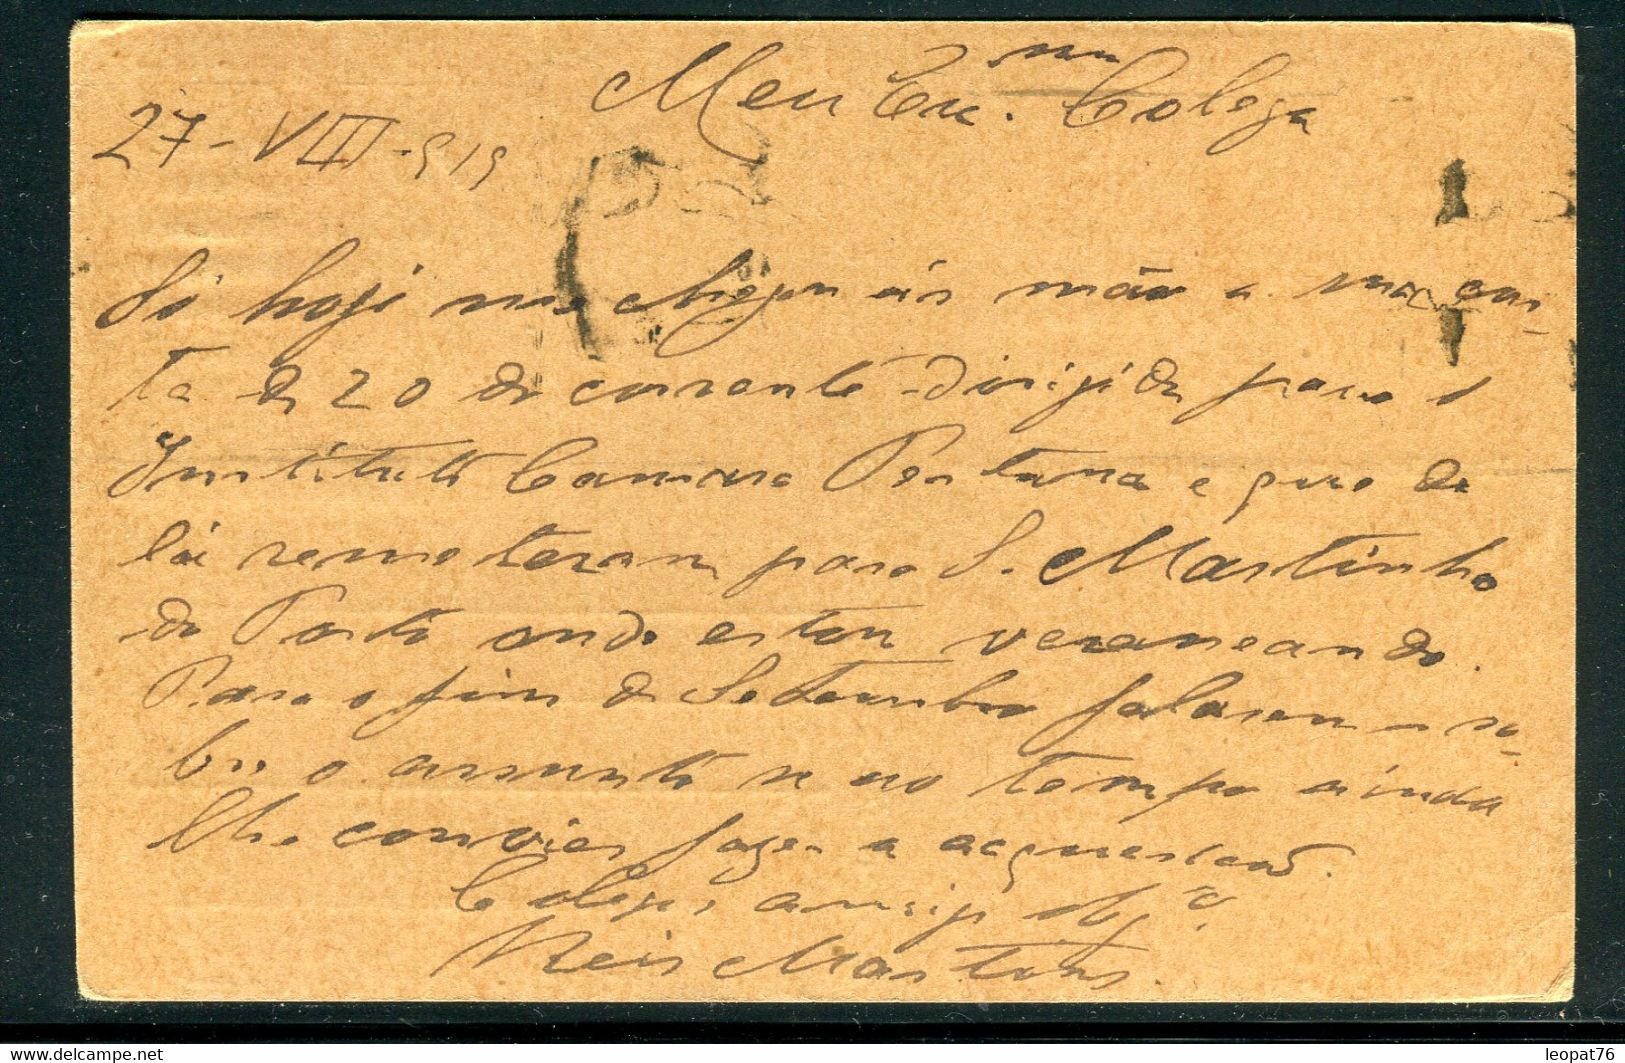 Meu Exmo. Colega
27-VIII-919
Só hoje me chegou ás mãos a sua car-
ta de 20 do corrente dirigida para o
Instituto Camara Pestana e que de
lá remeteram para S. Martinho
do Porto onde estou veraneando.
Para o fim de Setembro falaremos so-
bre o assunto se ao tempo ainda
lhe convier fazer a acquisição.
Colega, amigo obgdo.
Reis Martins.
www.delcampe.net
leopat76